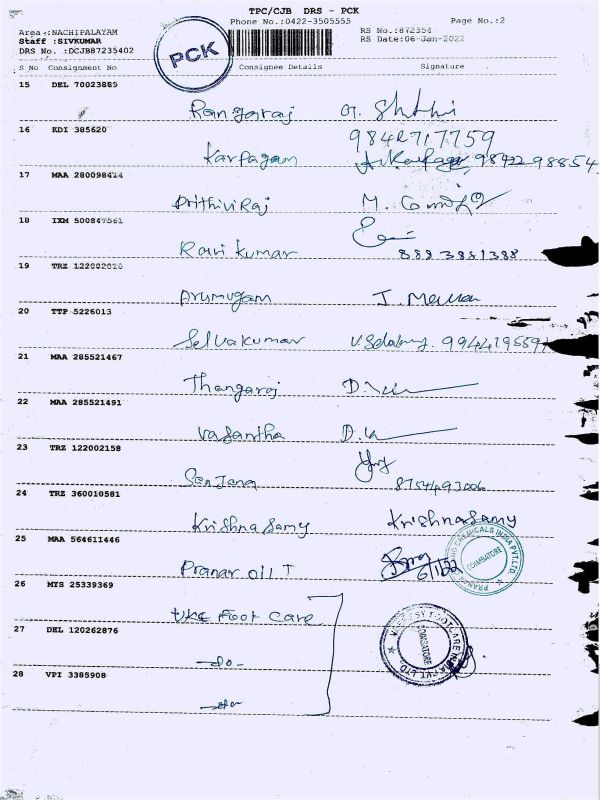 TPC/CJB DRS - PCK
Phone No.:0422-3505555 Page No.:2
Area :NACHIPALAYAM RS No.:872354
Staff :SIVKUMAR RS Date:06-Jan-2022
DRS No. :DCJB87235402
PCK
S No Consignment No Consignee Details Signature
15 DEL 70023889
Rangaraj
16 KDI 385620 9842717759
Karpagam 98422 98854
17 MAA 280098414
Prithiviraj M.
18 IXM 500847561
Ravi kumar 8883881388
19 TRZ 122002010
Arumugam
20 TTP 5226013
Selvakumar
21 MAA 285521467
Thangaraj
22 MAA 285521491
Vasantha
23 TRZ 122002158
Sanjana 8754493006
24 TRZ 360010581
Krishnasamy Krishnasamy
25 MAA 564611446
Pranav oil 6/1/22
CHEMICALS INDIA PVT. LTD. COIMBATORE
26 MTS 25339369
VKC Foot Care
27 DEL 120262876
FOOTCARE INDIA PVT LTD. COIMBATORE
-do-
28 VPI 3385908
-do-